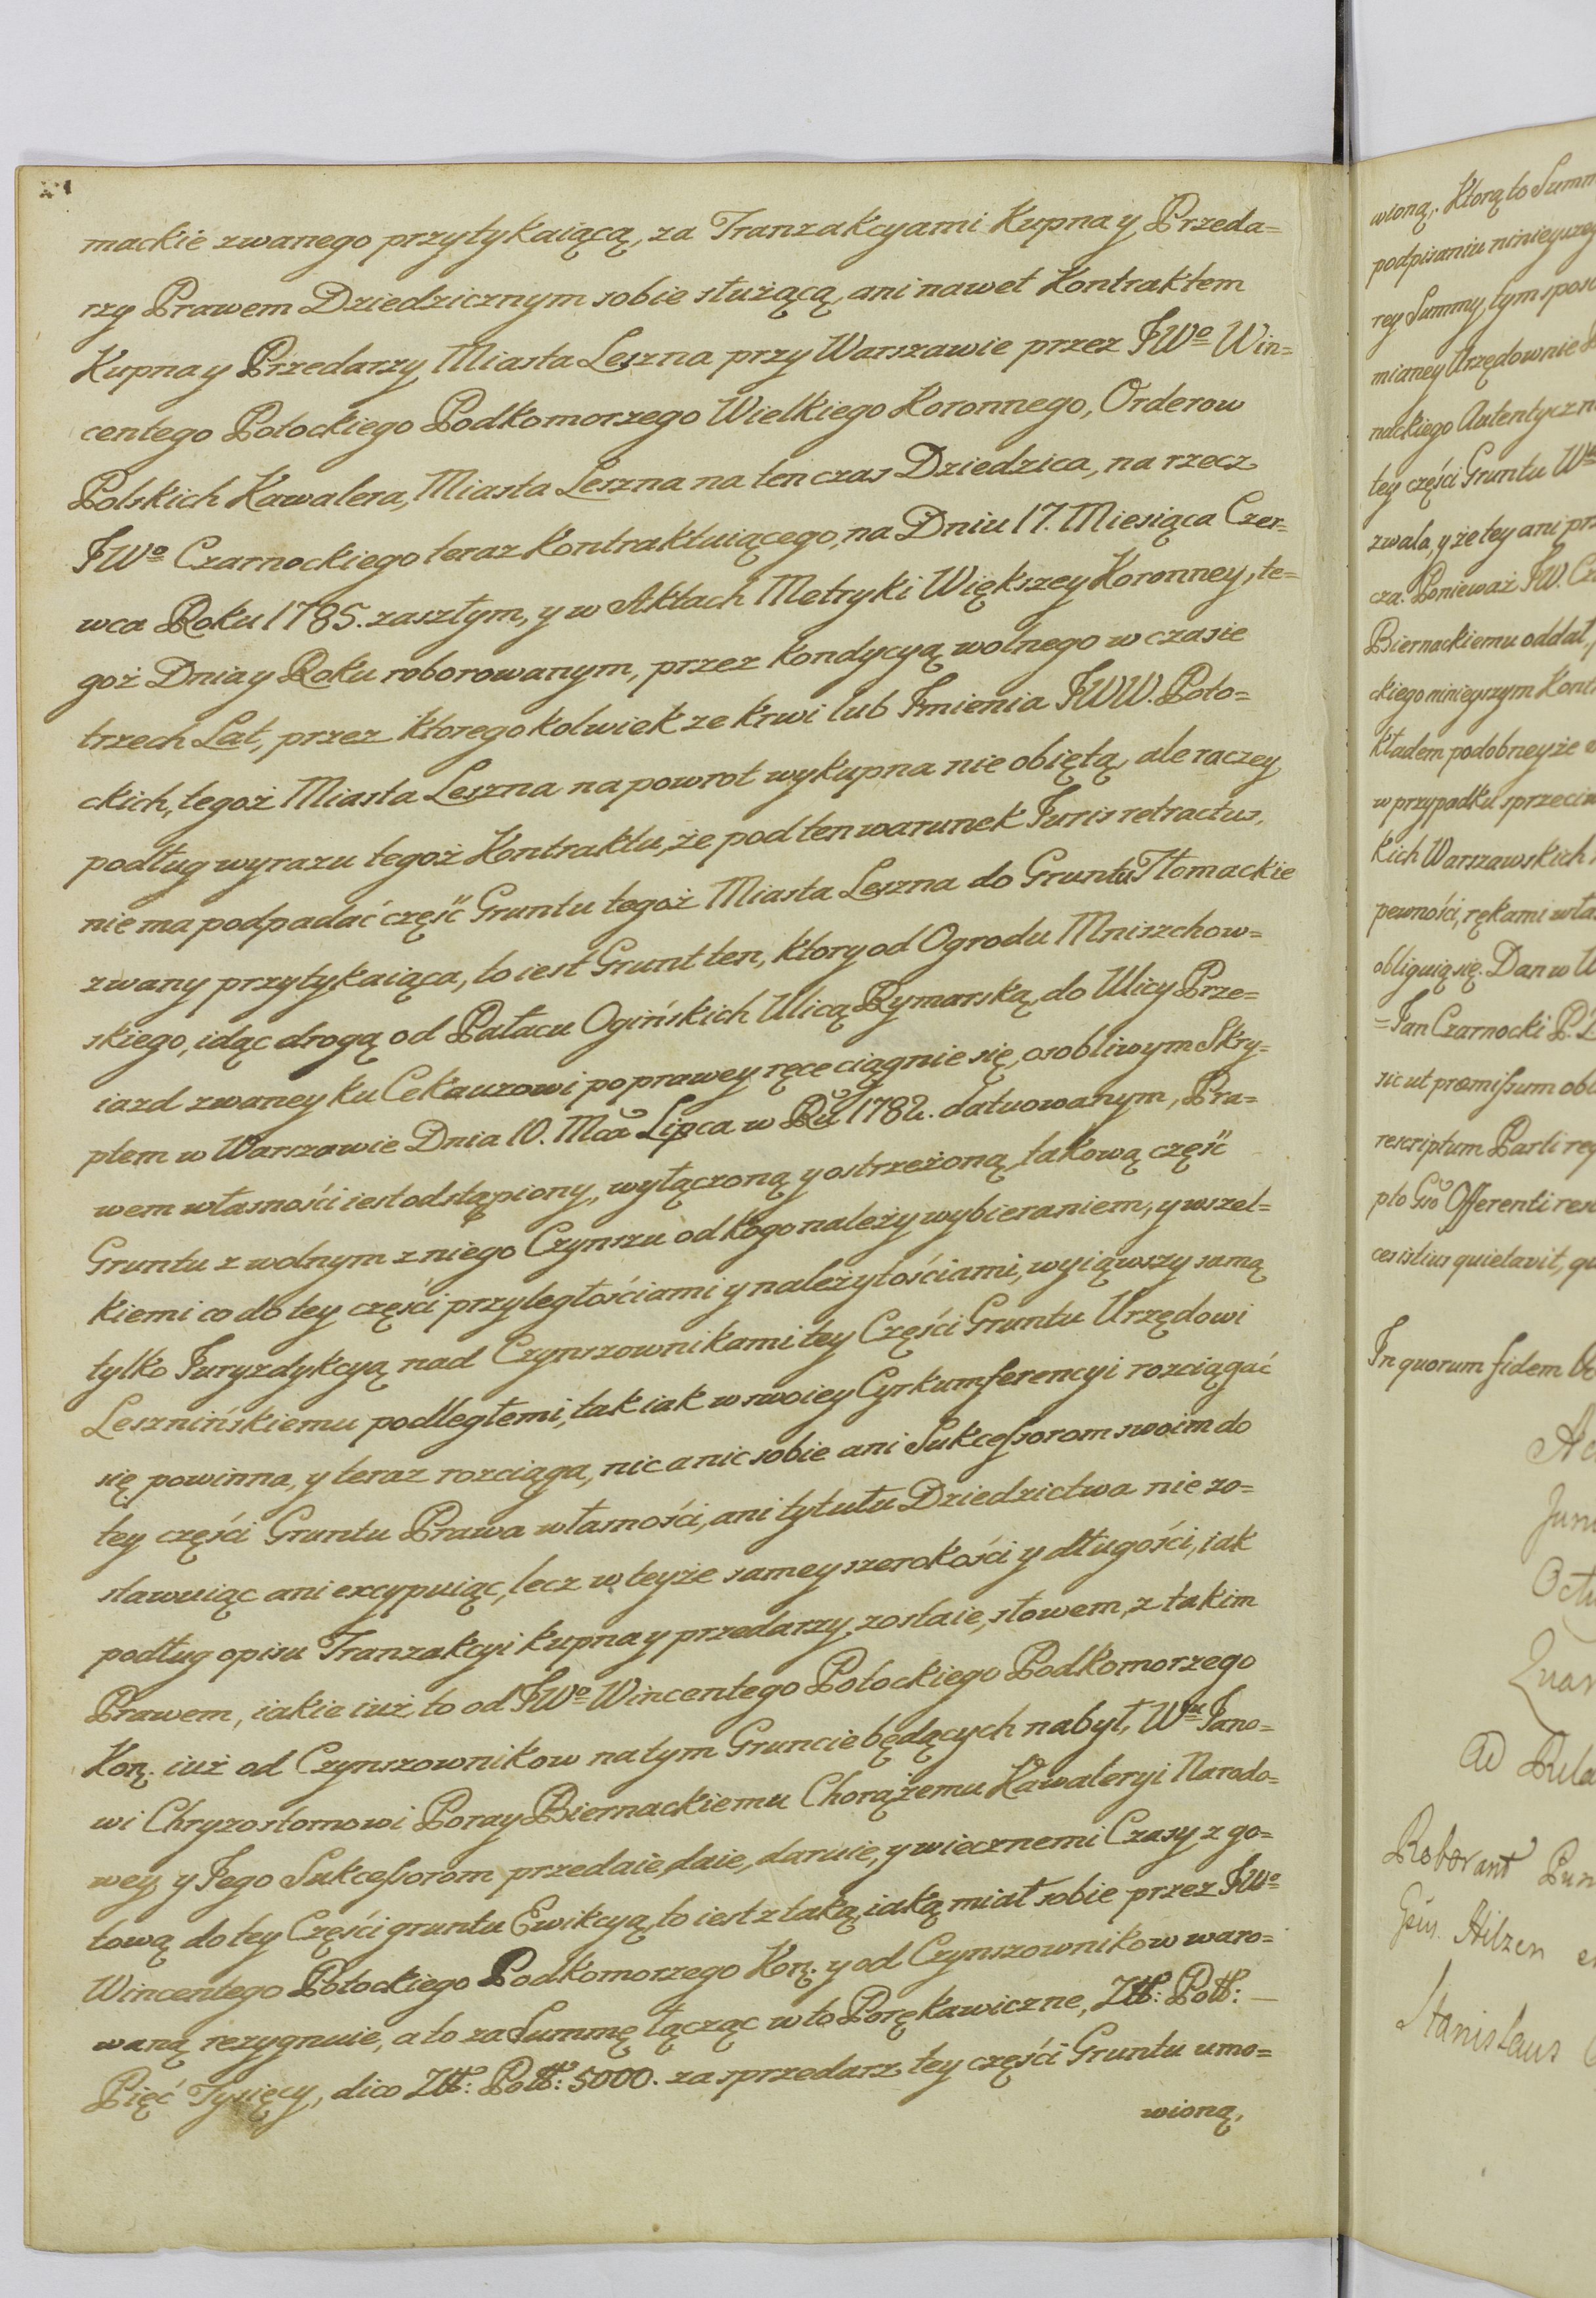 mackie zwanego przytykaiącą, za Tranzakcyami Kupna y Przeda=
rzy Prawem Dziedzicznym sobie służącą, ani nawet Kontraktem
Kupna y Przedarzy Miasta Leszna przy Warszawie przez JWo Win=
centego Potockiego Podkomorzego Wielkiego Koronnego, Orderow
Polskich Kawalera, Miasta Leszna na ten czas Dziedzica, na rzecz
JWo Czarnockiego teraz Kontraktuiącego, na Dniu 17. Miesiąca Czer=
wca Roku 1785. zaszłym, y w Aktach Metryki Większey Koronney, te=
goż Dnia y Roku roborowanym, przez kondycyą wolnego w czasie
trzech Lat, przez ktoregokolwiek ze krwi lub Imienia JWW. Poto=
ckich, tegoż Miasta Leszna na powrot wykupna nie obiętą, ale raczey
podług wyrazu tegoż Kontraktu, że pod ten warunek Juris retractus,
nie ma podpadać część Gruntu tegoż Miasta Leszna do Gruntu Tłomackie
zwany przytykaiąca, to iest Grunt ten, ktory od Ogrodu Mniszchow=
skiego, idąc drogą od Pałacu Ogińskich Ulicą Rymarską, do Ulicy Prze=
iazd zwaney ku Cekauzowi po prawey ręce ciągnie się, osobliwym Skry=
ptem w Warszawie Dnia 10. Mca Lipca w Ru 1782. datuowanym, Pra=
wem własności iest odstąpiony, wyłączoną y ostrzeżoną, takową część
Gruntu z wolnym z niego Czynszu od kogo należy wybieraniem, y wszel=
kiemi co do tey części przyległościami y należytościami, wyiąwszy samą
tylko Juryzdykcyą nad Czynszownikami tey Części Gruntu Urzędowi
Lesznińskiemu podległemi, tak iak w swoiey Cyrkumferencyi rozciągać
się powinna, y teraz rozciąga, nic a nic sobie ani Sukcessorom swoim do
tey części Gruntu Prawa własności, ani tytułu Dziedzictwa nie zo=
stawuiąc ani excypuiąc, lecz w teyże samey szerokości y długości, iak
podług opisu Tranzakcyi kupna y przedarzy zostaie, słowem, z takim
Prawem, iakie iuż to od JWo Wincentego Potockiego Podkomorzego
Kon. iuż od Czynszownikow na tym Gruncie będących nabył, Wu Jano=
wi Chryzostomowi Poray Biernackiemu Chorążemu Kawaleryi Narodo=
wey y Jego Sukcessorom przedaie, daie, daruie, y wiecznemi Czasy z go=
tową do tey Części gruntu Ewikcyą, to iest z taką, iaką miał sobie przez JWo
Wincentego Potockiego Podkomorzego Kon. y od Czynszownikow waro=
waną rezygnuie, a to za Summę łącząc w to Porękawiczne, Złł: Poll: —
Pięć Tysięcy, dico Złł: Poll: 5000. za sprzedarz tey części Gruntu umo=
wioną,
wioną, Ktorą to Summ
podpisaniu ninieyszeg
rey Summy, tym sposo
mianey Urzędownie
nackiego Autentyczn
tey części Gruntu W
zwala, y że tey ani prz
cza. Ponieważ JW. Cz
Biernackiemu oddał,
ckiego ninieyszym Kont
kładem podobneyże
w przypadku sprzeciw
kich Warszawskich
pewności, rękami wła
obliguią się. Dan w
=Jan Czarnocki P.
sic ut præmissum obl
rescriptum Parti re
pto Gso Offerenti res
ces istius quietavit, qu
In quorum fidem
Ac
Juni
Octu
Ad Rela
Roborant Pun
Gsus. Hilzen e
Stanislaus